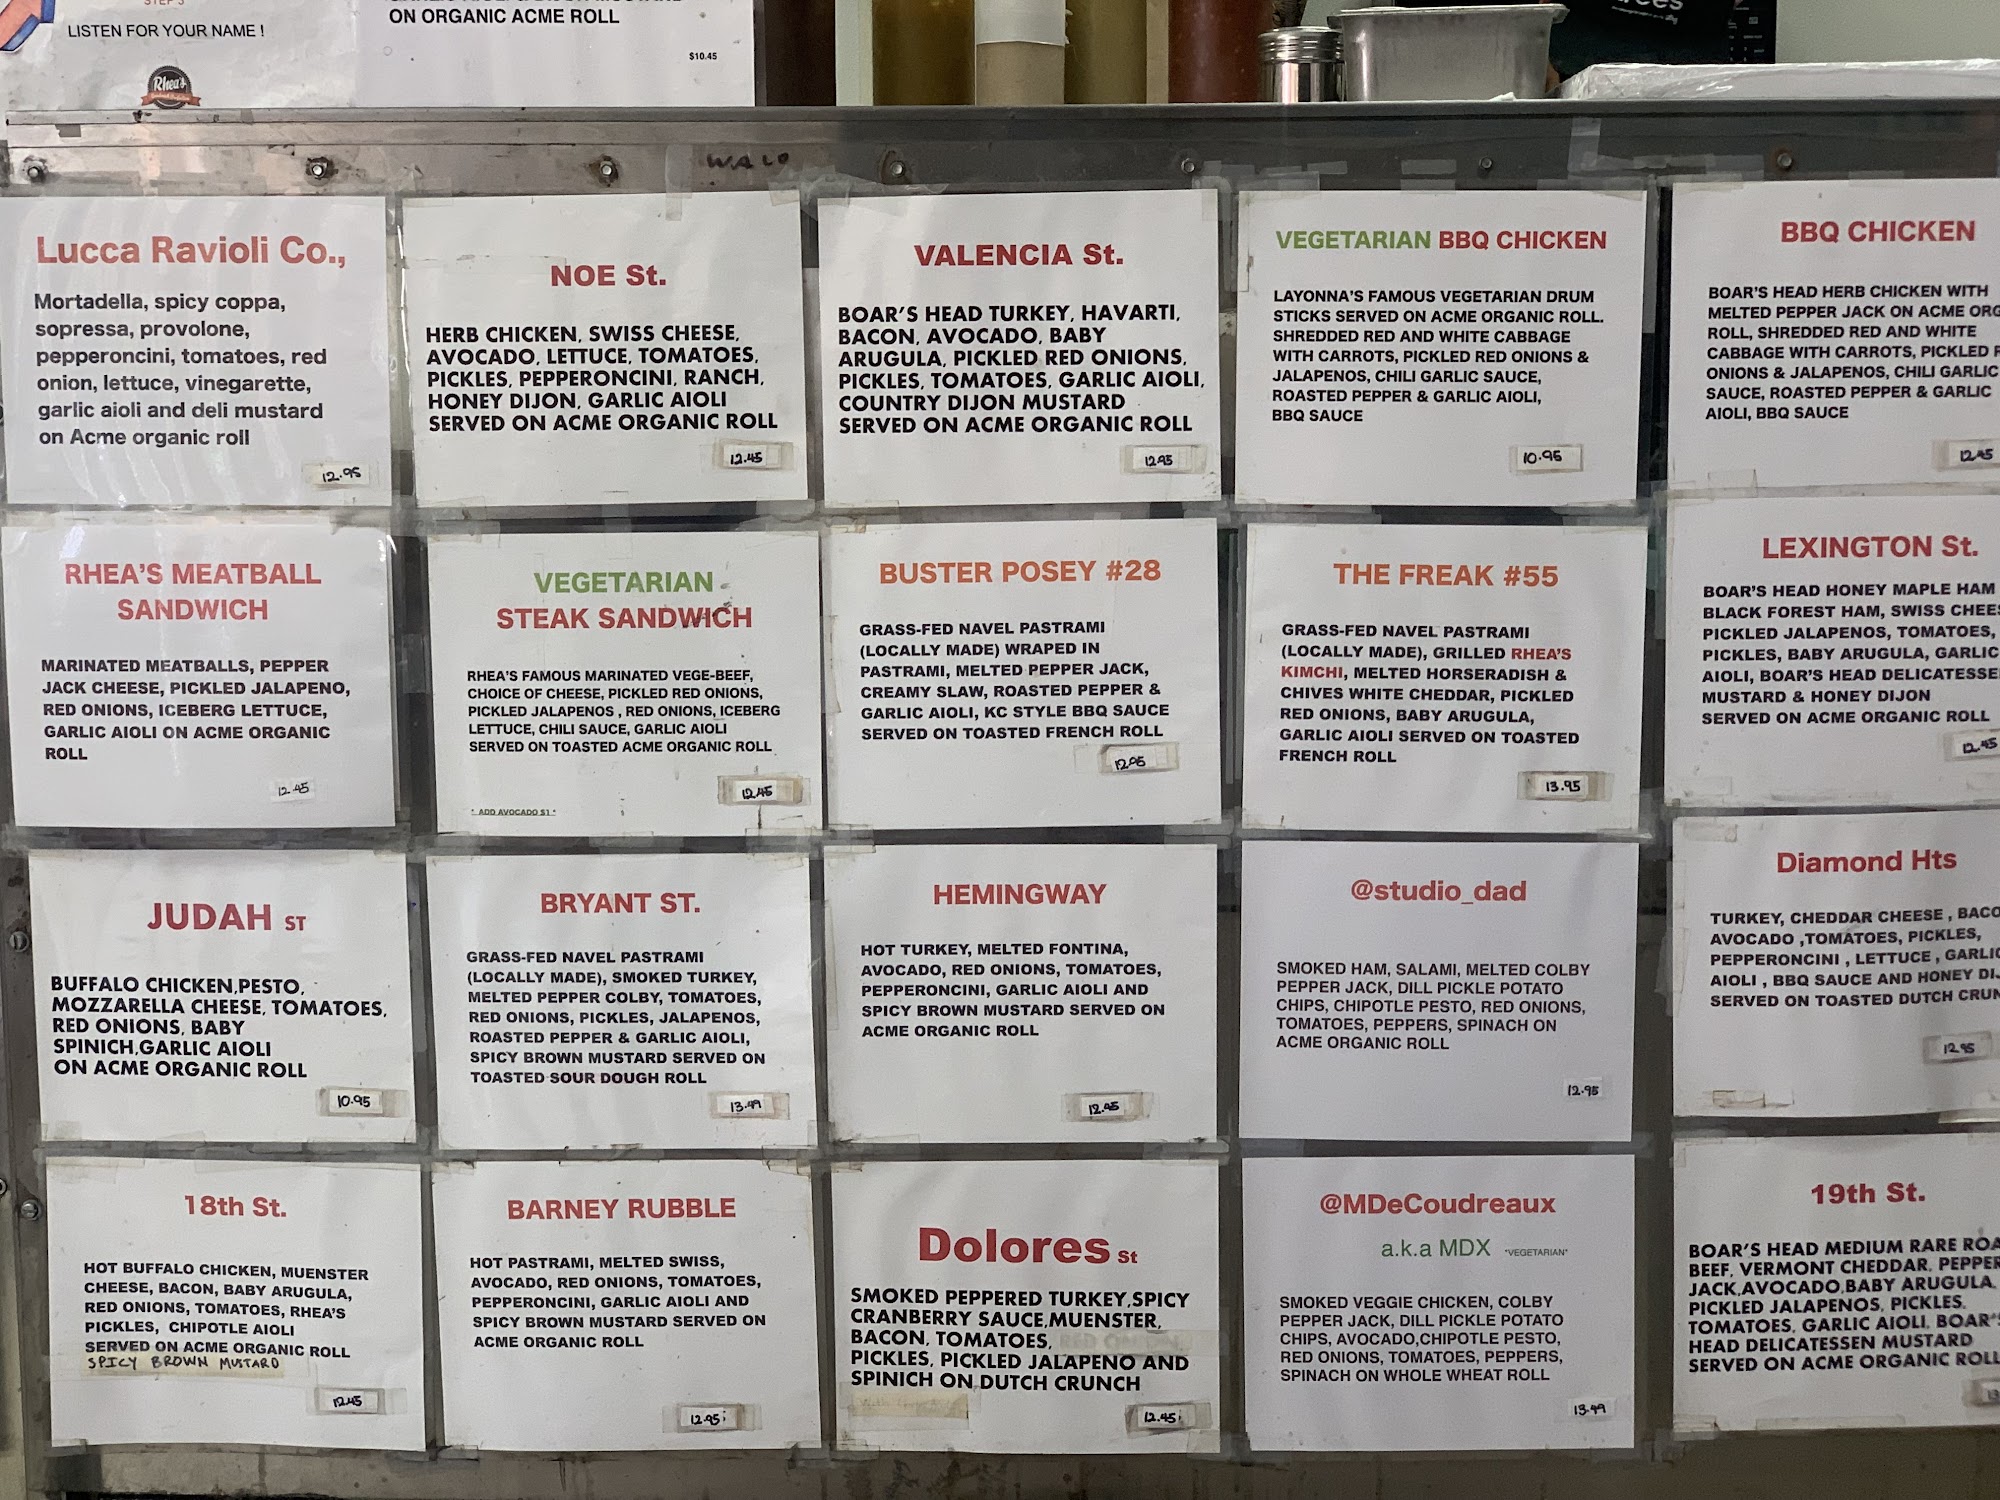 STEP 3
LISTEN FOR YOUR NAME !
Rhea's
ON ORGANIC ACME ROLL
$10.45
WALO
Lucca Ravioli Co.,
Mortadella, spicy coppa,
sopressa, provolone,
pepperoncini, tomatoes, red
onion, lettuce, vinegarette,
garlic aioli and deli mustard
on Acme organic roll
12.95
NOE St.
HERB CHICKEN, SWISS CHEESE,
AVOCADO, LETTUCE, TOMATOES,
PICKLES, PEPPERONCINI, RANCH,
HONEY DIJON, GARLIC AIOLI
SERVED ON ACME ORGANIC ROLL
12.45
VALENCIA St.
BOAR'S HEAD TURKEY, HAVARTI,
BACON, AVOCADO, BABY
ARUGULA, PICKLED RED ONIONS,
PICKLES, TOMATOES, GARLIC AIOLI,
COUNTRY DIJON MUSTARD
SERVED ON ACME ORGANIC ROLL
12.95
VEGETARIAN BBQ CHICKEN
LAYONNA'S FAMOUS VEGETARIAN DRUM
STICKS SERVED ON ACME ORGANIC ROLL.
SHREDDED RED AND WHITE CABBAGE
WITH CARROTS, PICKLED RED ONIONS &
JALAPENOS, CHILI GARLIC SAUCE,
ROASTED PEPPER & GARLIC AIOLI,
BBQ SAUCE
10.95
BBQ CHICKEN
BOAR'S HEAD HERB CHICKEN WITH
MELTED PEPPER JACK ON ACME ORG
ROLL, SHREDDED RED AND WHITE
CABBAGE WITH CARROTS, PICKLED R
ONIONS & JALAPENOS, CHILI GARLIC
SAUCE, ROASTED PEPPER & GARLIC
AIOLI, BBQ SAUCE
12.45
RHEA'S MEATBALL
SANDWICH
MARINATED MEATBALLS, PEPPER
JACK CHEESE, PICKLED JALAPENO,
RED ONIONS, ICEBERG LETTUCE,
GARLIC AIOLI ON ACME ORGANIC
ROLL
12.45
VEGETARIAN
STEAK SANDWICH
RHEA'S FAMOUS MARINATED VEGE-BEEF,
CHOICE OF CHEESE, PICKLED RED ONIONS,
PICKLED JALAPENOS , RED ONIONS, ICEBERG
LETTUCE, CHILI SAUCE, GARLIC AIOLI
SERVED ON TOASTED ACME ORGANIC ROLL
12.45
* ADD AVOCADO $1 *
BUSTER POSEY #28
GRASS-FED NAVEL PASTRAMI
(LOCALLY MADE) WRAPED IN
PASTRAMI, MELTED PEPPER JACK,
CREAMY SLAW, ROASTED PEPPER &
GARLIC AIOLI, KC STYLE BBQ SAUCE
SERVED ON TOASTED FRENCH ROLL
12.95
THE FREAK #55
GRASS-FED NAVEL PASTRAMI
(LOCALLY MADE), GRILLED RHEA'S
KIMCHI, MELTED HORSERADISH &
CHIVES WHITE CHEDDAR, PICKLED
RED ONIONS, BABY ARUGULA,
GARLIC AIOLI SERVED ON TOASTED
FRENCH ROLL
13.95
LEXINGTON St.
BOAR'S HEAD HONEY MAPLE HAM
BLACK FOREST HAM, SWISS CHEES
PICKLED JALAPENOS, TOMATOES,
PICKLES, BABY ARUGULA, GARLIC
AIOLI, BOAR'S HEAD DELICATESSE
MUSTARD & HONEY DIJON
SERVED ON ACME ORGANIC ROLL
12.45
JUDAH ST
BUFFALO CHICKEN,PESTO,
MOZZARELLA CHEESE, TOMATOES,
RED ONIONS, BABY
SPINICH,GARLIC AIOLI
ON ACME ORGANIC ROLL
10.95
BRYANT ST.
GRASS-FED NAVEL PASTRAMI
(LOCALLY MADE), SMOKED TURKEY,
MELTED PEPPER COLBY, TOMATOES,
RED ONIONS, PICKLES, JALAPENOS,
ROASTED PEPPER & GARLIC AIOLI,
SPICY BROWN MUSTARD SERVED ON
TOASTED SOUR DOUGH ROLL
13.49
HEMINGWAY
HOT TURKEY, MELTED FONTINA,
AVOCADO, RED ONIONS, TOMATOES,
PEPPERONCINI, GARLIC AIOLI AND
SPICY BROWN MUSTARD SERVED ON
ACME ORGANIC ROLL
12.45
@studio_dad
SMOKED HAM, SALAMI, MELTED COLBY
PEPPER JACK, DILL PICKLE POTATO
CHIPS, CHIPOTLE PESTO, RED ONIONS,
TOMATOES, PEPPERS, SPINACH ON
ACME ORGANIC ROLL
12.95
Diamond Hts
TURKEY, CHEDDAR CHEESE , BACO
AVOCADO ,TOMATOES, PICKLES,
PEPPERONCINI , LETTUCE , GARLIC
AIOLI , BBQ SAUCE AND HONEY DIJ
SERVED ON TOASTED DUTCH CRUN
12.95
18th St.
HOT BUFFALO CHICKEN, MUENSTER
CHEESE, BACON, BABY ARUGULA,
RED ONIONS, TOMATOES, RHEA'S
PICKLES, CHIPOTLE AIOLI
SERVED ON ACME ORGANIC ROLL
SPICY BROWN MUSTARD
12.45
BARNEY RUBBLE
HOT PASTRAMI, MELTED SWISS,
AVOCADO, RED ONIONS, TOMATOES,
PEPPERONCINI, GARLIC AIOLI AND
SPICY BROWN MUSTARD SERVED ON
ACME ORGANIC ROLL
12.95
Dolores St
SMOKED PEPPERED TURKEY,SPICY
CRANBERRY SAUCE,MUENSTER,
BACON, TOMATOES,
PICKLES, PICKLED JALAPENO AND
SPINICH ON DUTCH CRUNCH
12.45
@MDeCoudreaux
a.k.a MDX *VEGETARIAN*
SMOKED VEGGIE CHICKEN, COLBY
PEPPER JACK, DILL PICKLE POTATO
CHIPS, AVOCADO,CHIPOTLE PESTO,
RED ONIONS, TOMATOES, PEPPERS,
SPINACH ON WHOLE WHEAT ROLL
13.49
19th St.
BOAR'S HEAD MEDIUM RARE ROA
BEEF, VERMONT CHEDDAR, PEPPER
JACK,AVOCADO,BABY ARUGULA,
PICKLED JALAPENOS, PICKLES,
TOMATOES, GARLIC AIOLI, BOAR'S
HEAD DELICATESSEN MUSTARD
SERVED ON ACME ORGANIC ROLL
13